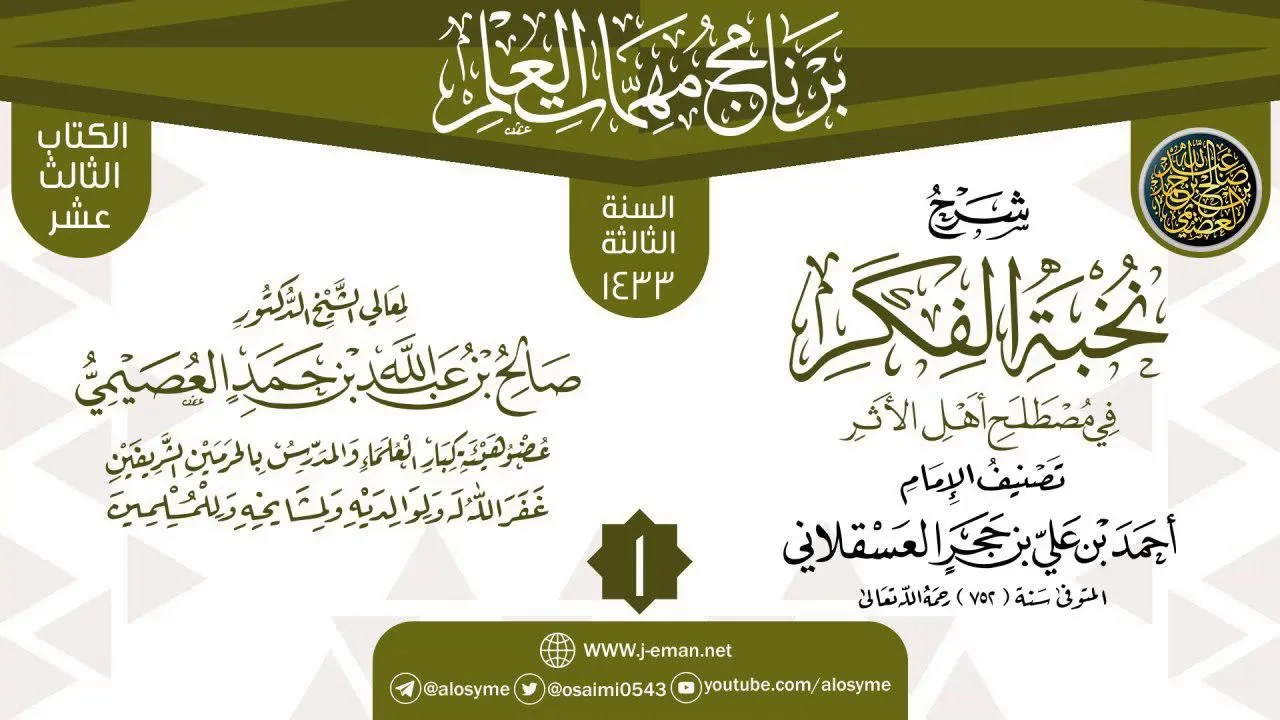 بَرْنَامَجُ مُهِمَّاتِ الْعِلْمِ
صالح بن عبد الله بن حمد العصيمي
الكتاب
الثالث
عشر
السنة
الثالثة
١٤٣٣
شَرْحُ
نُخْبَةِ الْفِكَرِ
فِي مُصْطَلَحِ أَهْلِ الْأَثَرِ
تَصْنِيفُ الإِمَامِ
أَحْمَدَ بْنِ عَلِيِّ بْنِ حَجَرٍ الْعَسْقَلَانِي
المتوفى سَنَة (٧٥٢) رَحِمَهُ اللَّه تَعَالَى
لِمَعَالِي الشَّيْخِ الدُّكْتُورِ
صَالِحُ بْنُ عَبْدِ اللَّهِ بْنِ حَمَدٍ الْعُصَيْمِيُّ
عُضْوُ هَيْئَةِ كِبَارِ الْعُلَمَاءِ وَالْمُدَرِّسُ بِالْحَرَمَيْنِ الشَّرِيفَيْنِ
غَفَرَ اللَّهُ لَهُ وَلِوَالِدَيْهِ وَلِمَشَايِخِهِ وَلِلْمُسْلِمِينَ
١
WWW.j-eman.net
@alosyme @osaimi0543 youtube.com/alosyme